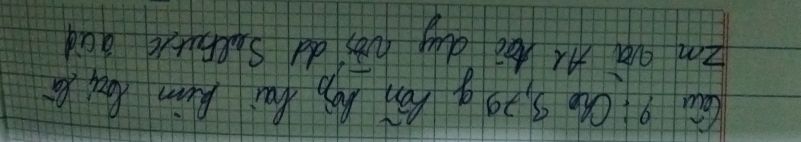 Câu 9: Cho 3,79 g hỗn hợp hai kim loại là
Zn và Al tác dụng với dd Sulfuric acid